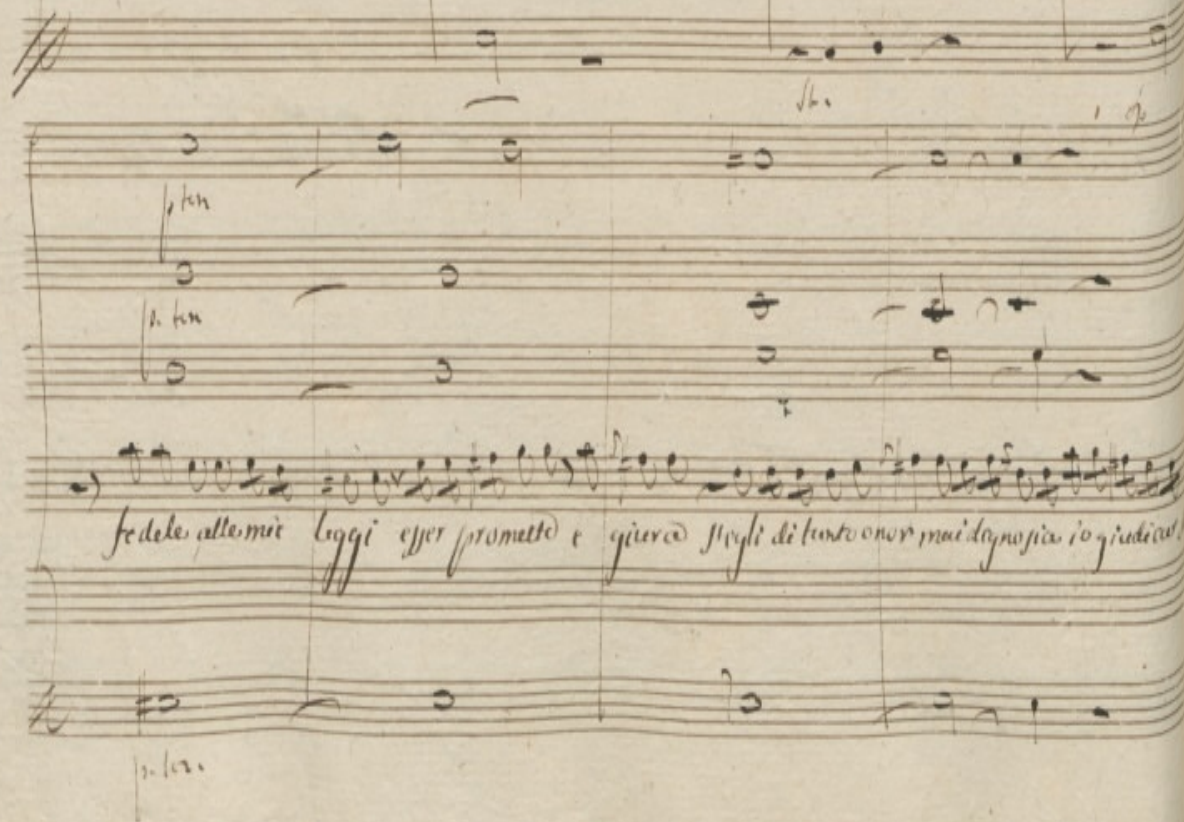 p. ten
p. ten
fedele alle mie leggi esser promette e giura s'egli di tanto onor mai degno sia io giudicar
p. ten.